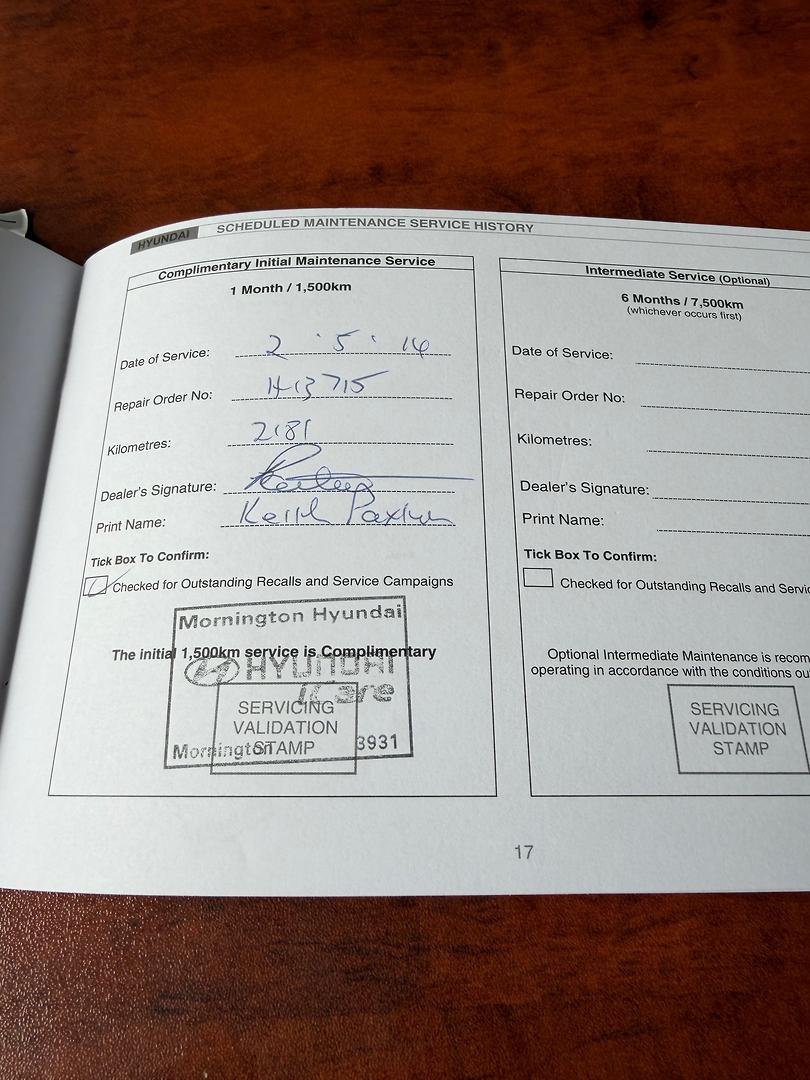 HYUNDAI
SCHEDULED MAINTENANCE SERVICE HISTORY
Complimentary Initial Maintenance Service
1 Month / 1,500km
Date of Service: 2 . 5 . 14
Repair Order No: 1413715
Kilometres: 2181
Dealer's Signature:
Print Name: Keith
Tick Box To Confirm:
Checked for Outstanding Recalls and Service Campaigns
Mornington Hyundai
The initial 1,500km service is Complimentary
HYUNDAI
iCare
SERVICING
VALIDATION
STAMP
Mornington 3931
Intermediate Service (Optional)
6 Months / 7,500km
(whichever occurs first)
Date of Service:
Repair Order No:
Kilometres:
Dealer's Signature:
Print Name:
Tick Box To Confirm:
Checked for Outstanding Recalls and Servic
Optional Intermediate Maintenance is recom
operating in accordance with the conditions ou
SERVICING
VALIDATION
STAMP
17